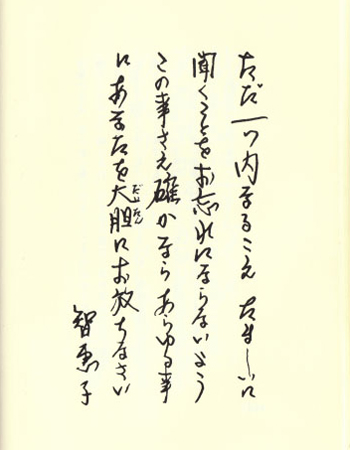 ただ一つ内なるこえ たましいに
聞くことをお忘れにならないよう
この事さえ確かならあらゆる事
にあなたを大胆にお放ちなさい
だいたん
智恵子